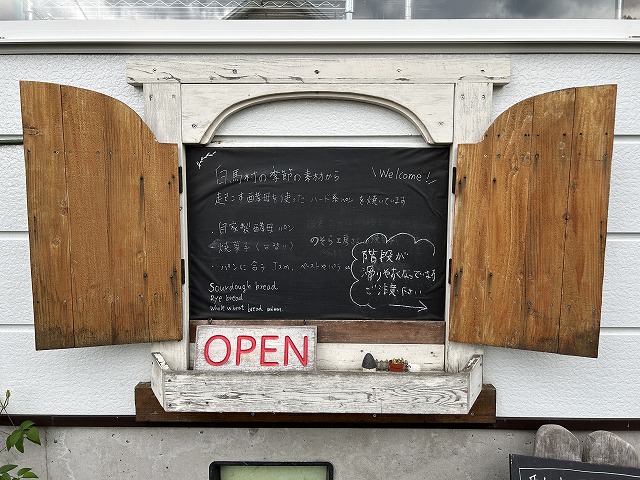 白馬村の季節の素材から
\Welcome!/
起こす酵母を使ったハード系パンを焼いています
・自家製酵母パン
・焼菓子(日替り)
のそら工房
・パンに合うJam、ペーストやバター
階段が
滑りやすくなっています
ご注意下さい
Sourdough bread
Rye bread
whole wheat bread
OPEN